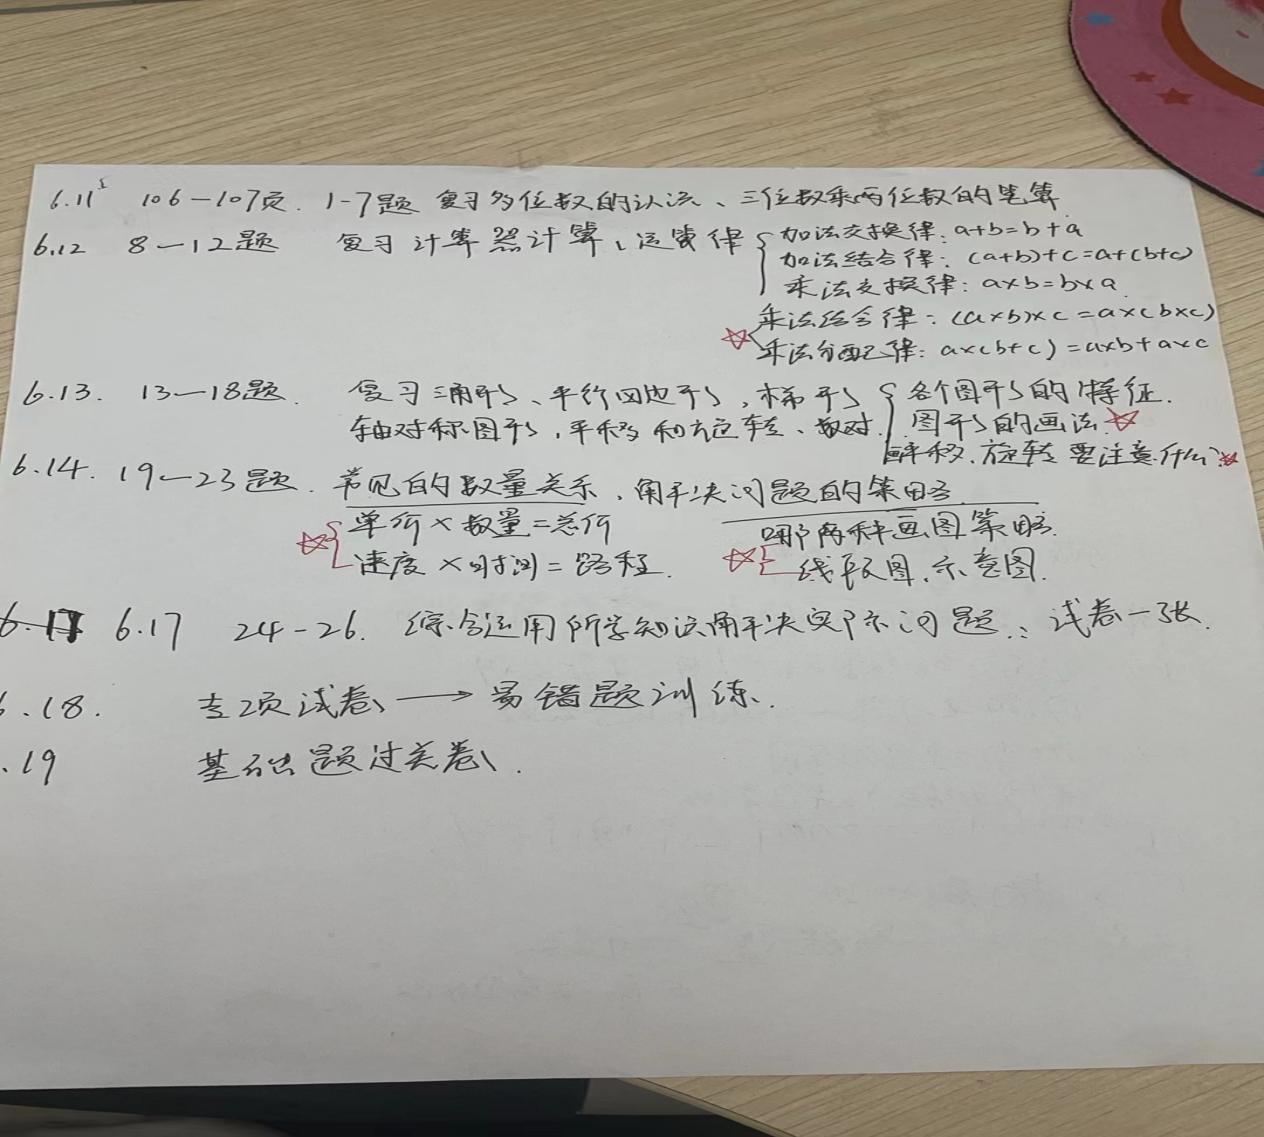 6.11 106-107页. 1-7题 复习多位数的认识、三位数乘两位数的笔算
6.12 8-12题 复习计算器计算、运算律 加法交换律: a+b=b+a
加法结合律: (a+b)+c=a+(b+c)
乘法交换律: a×b=b×a
乘法结合律: (a×b)×c=a×(b×c)
乘法分配律: a×(b+c)=a×b+a×c
6.13. 13-18题. 复习三角形、平行四边形,梯形 各个图形的特征.
轴对称图形,平移和旋转、数对. 图形的画法
平移.旋转要注意什么?
6.14. 19-23题. 常见的数量关系、解决问题的策略
单价×数量=总价 哪两种画图策略.
速度×时间=路程. 线段图.示意图.
6.17 24-26. 综合运用所学知识解决实际问题.: 试卷一张.
.18. 专项试卷→易错题训练.
.19 基础题过关卷.